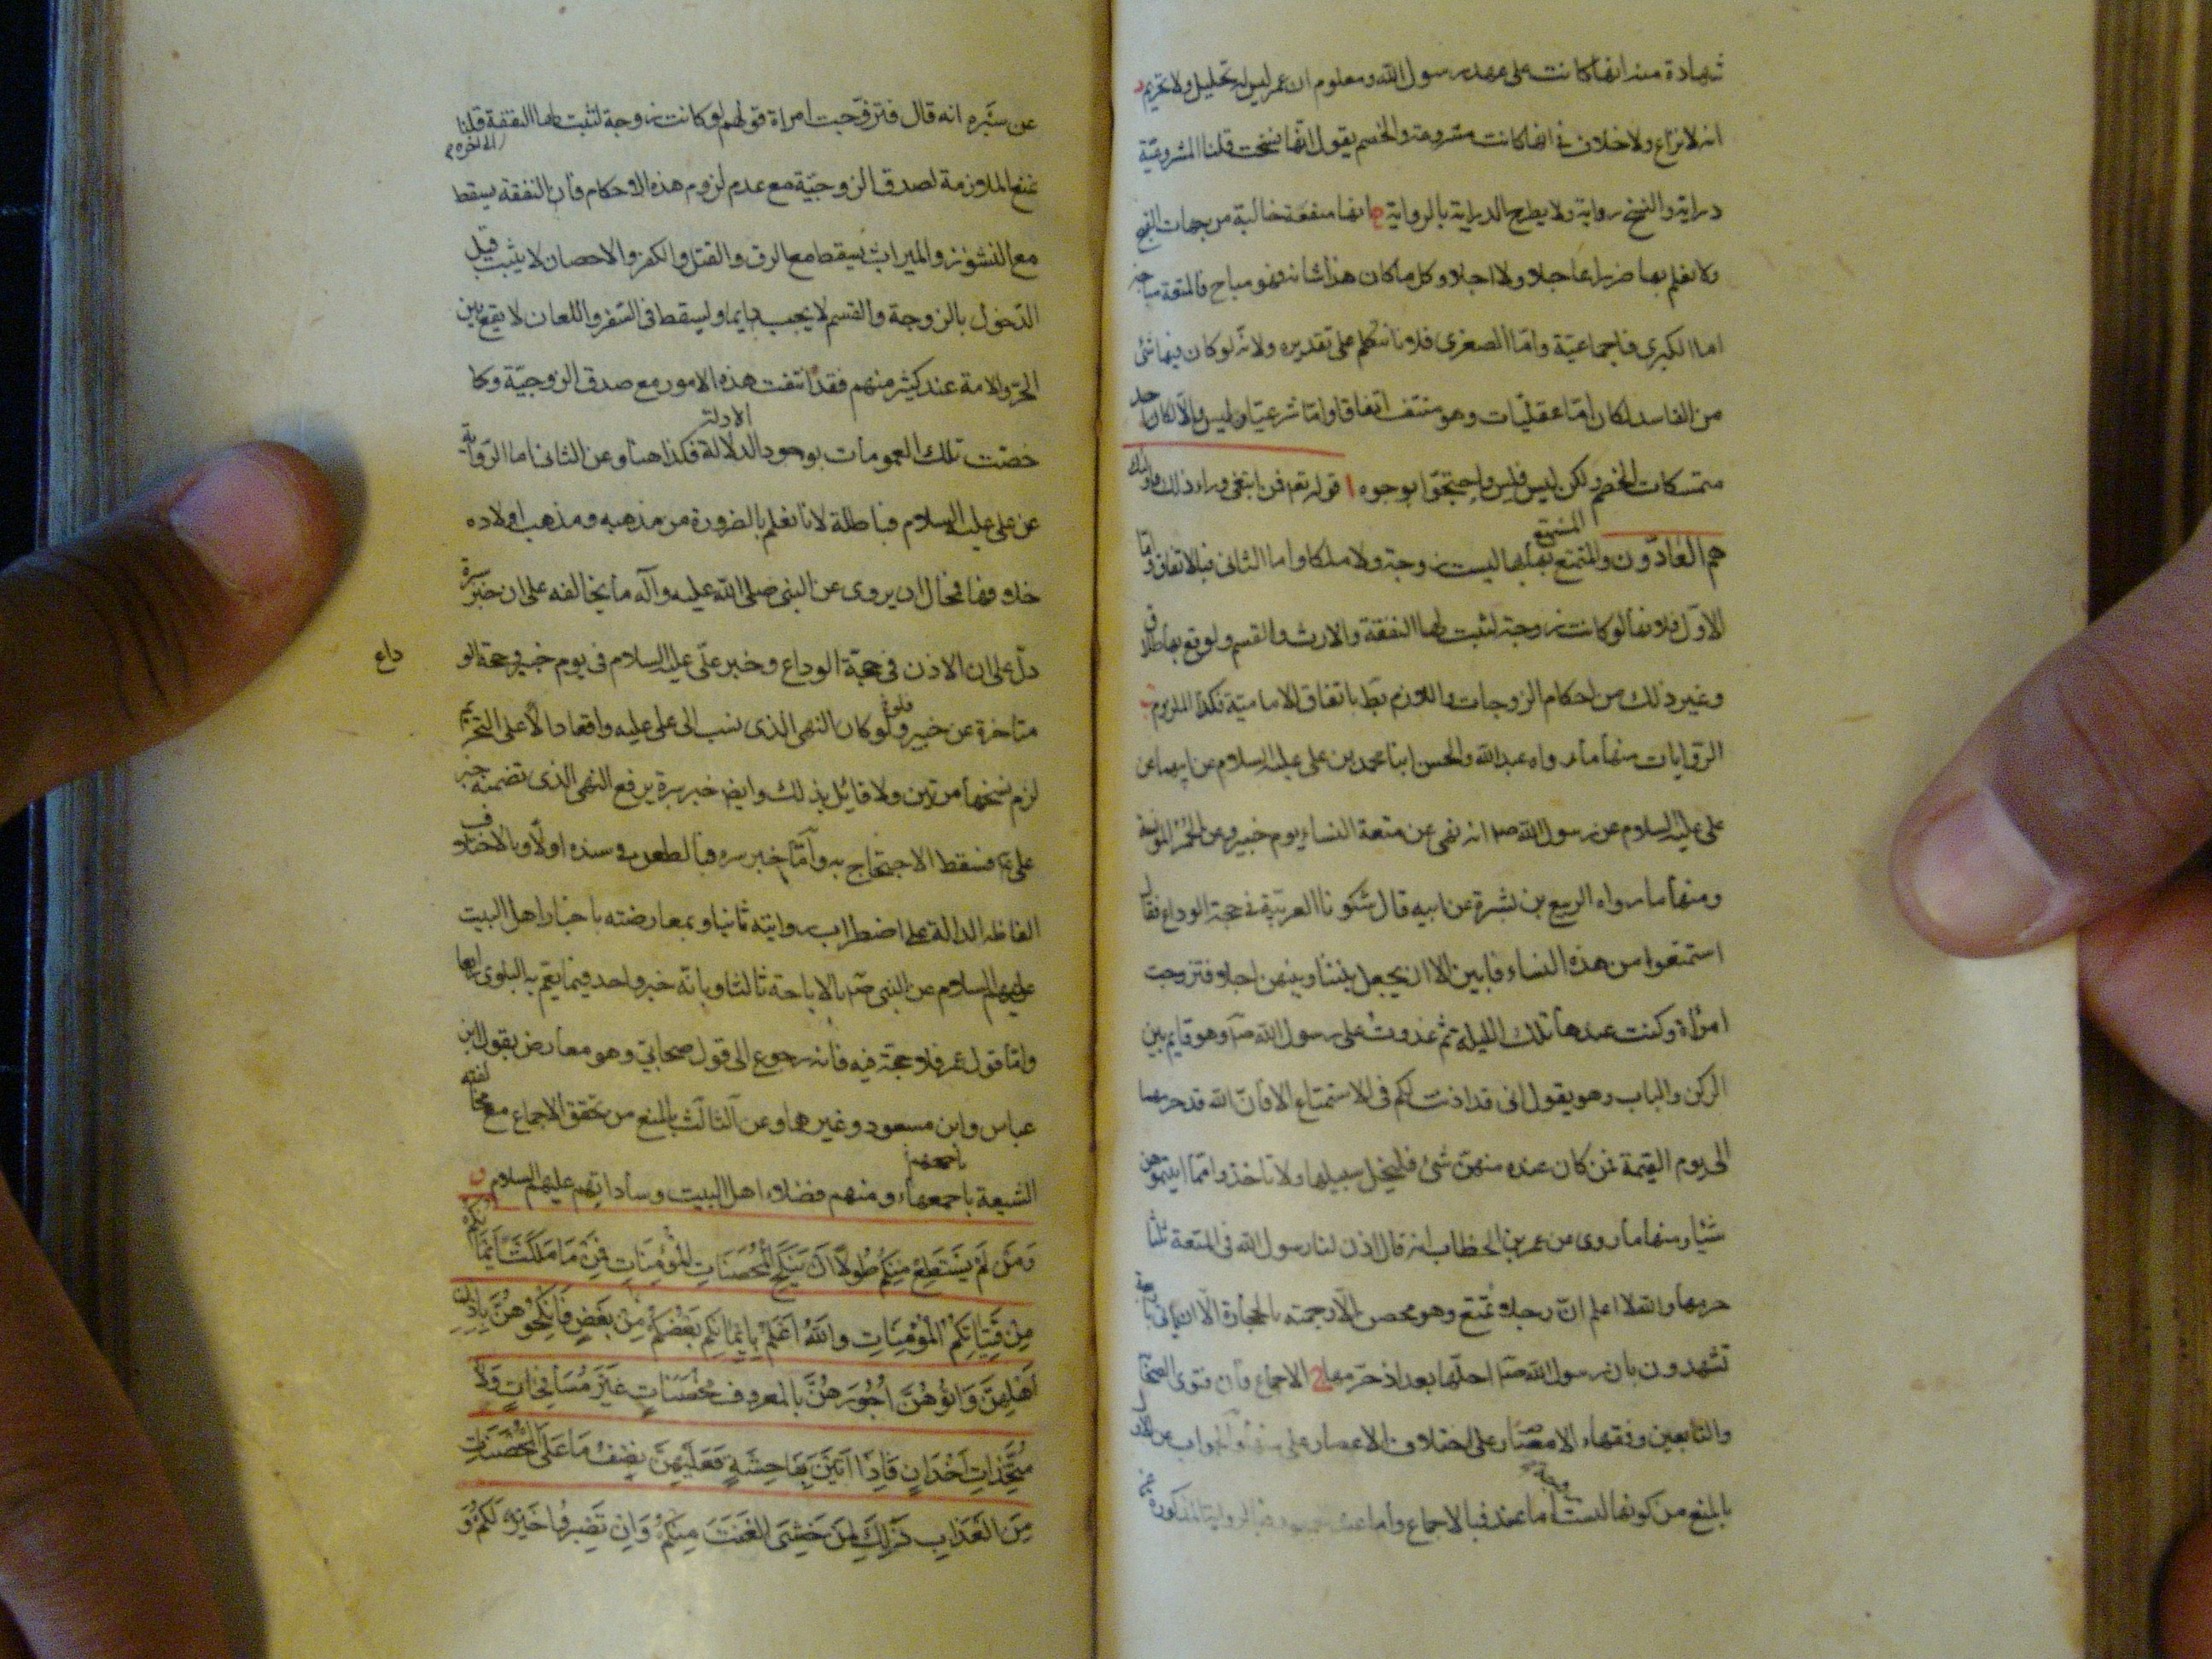 شهادة منه انها كانت على عهد رسول الله ومعلوم ان عمر ليس له تحليل ولا تحريم د
انه لا نزاع ولا خلاف في انها كانت مشروعة والخصم يقول انها نسخت قلنا المشروعية
دراية والنسخ رواية ولا يطرح الدراية بالرواية ه انها منفعة خالية من جهات القبح
ولا نعلم بها ضررا عاجلا ولا اجلا وكل ما كان هذا شانه فهو مباح فالمتعة مباحة
اما الكبرى فاجماعية واما الصغرى فلانا نتكلم على تقديره ولانه لو كان فيها شئ
من المفاسد لكان اما عقليا وهو منتف اتفاقا واما شرعيا وليس والا لكان احد
متمسكات الخصم ولكن ليس فليس واحتجوا بوجوه ا قوله تعم فمن ابتغى وراء ذلك فاولئك
هم العادون والمتمتع بها ليست زوجة ولا ملكا واما الثاني فبالاتفاق واما
المستمتع
الاول فلانها لو كانت زوجة لثبت لها النفقة والارث والقسم ولوقع بها طلاق
وغير ذلك من احكام الزوجات واللازم بط باتفاق الامامية فكذا الملزوم ب
الروايات منها ما رواه عبد الله والحسن ابنا محمد بن علي عليه السلام عن ابيهما عن
علي عليه السلام عن رسول الله صم انه نهى عن متعة النساء يوم خيبر وعن الحمر الانسية
ومنها ما رواه الربيع بن بشرة عن ابيه قال شكونا العزبة في حجة الوداع فقال
استمتعوا من هذه النساء فابين الا ان يجعل بيننا وبينهن اجلا فتزوجت
امراة وكنت عندها تلك الليلة ثم غدوت على رسول الله صم وهو قايم بين
الركن والباب وهو يقول اني قد اذنت لكم في الاستمتاع الا فان الله قد حرمها
الى يوم القيمة فمن كان عنده منهن شئ فليخل سبيلها ولا تاخذوا مما ايتموهن
شيئا ومنها ما روى عن عمر بن الخطاب انه قال اذن لنا رسول الله في المتعة ثلثا
حرمها والله لا اعلم ان رجلا تمتع وهو محصن الا رجمته بالحجارة الا ان ياتي باربعة
تشهدون بان رسول الله صم احلها بعد اذ حرمها 2 الاجماع فان فتوى الصحابة
والتابعين وفقهاء الامصار على اختلاف الاعصار على والجواب عن الاول
بالمنع من كونها ليست زوجة اما عندنا فبالاجماع واما فبالرواية المذكورة
عن سبره انه قال فتزوجت امراة قولهم لو كانت زوجة لثبت لها النفقة قلنا
الى اخره
نمنع الملازمة لصدق الزوجية مع عدم لزوم هذه الاحكام فان النفقة يسقط
مع النشوز والميراث يسقط مع الرق والقتل والكفر والاحصان لا يثبت قبل
الدخول بالزوجة والقسم لا يجب دايما ويسقط في السفر واللعان لا يقع بين
الحر والامة عند كثير منهم فقد انتفت هذه الامور مع صدق الزوجية وكما
خصت تلك العمومات بوجود الدلالة فكذا هنا وعن الثاني اما الرواية
الادلة
عن علي عليه السلام فباطلة لانا نعلم بالضرورة من مذهبه ومذهب اولاده
خلافها فمحال ان يروى عن النبي صلى الله عليه وآله ما يخالفه على ان خبر سبرة
دل على ان الاذن في حجة الوداع وخبر علي عليه السلام في يوم خيبر وحجة الو
داع
متاخرة عن خيبر فلو كان النهي الذي نسب الى علي عليه واقعا دالا على التحريم
لزم نسخها مرتين ولا قائل بذلك وايضا خبر سبرة يرفع النهي الذي تضمنه خبر
علي ع فسقط الاحتجاج به واما خبر سبره فبالطعن في سنده اولا وبالاختلاف
الفاظه الدالة على اضطراب روايته ثانيا وبمعارضته باخبار اهل البيت
عليهم السلام عن النبي صم بالاباحة ثالثا وبانه خبر واحد فيما يعم به البلوى رابعا
واما قول عمر فلا حجة فيه فانه رجوع الى قول صحابي وهو معارض بقول ابن
عباس وابن مسعود وغيرهما وعن الثالث بالمنع من تحقق الاجماع مع مخالفته
الشيعة باجمعها ومنهم فضلاء اهل البيت وساداتهم عليهم السلام
باجمعهم
وَمَنْ لَمْ يَسْتَطِعْ مِنْكُمْ طَوْلًا أَنْ يَنْكِحَ الْمُحْصَنَاتِ الْمُؤْمِنَاتِ فَمِنْ مَا مَلَكَتْ أَيْمَانُكُمْ
مِنْ فَتَيَاتِكُمُ الْمُؤْمِنَاتِ وَاللهُ أَعْلَمُ بِإِيمَانِكُمْ بَعْضُكُمْ مِنْ بَعْضٍ فَانْكِحُوهُنَّ بِإِذْنِ
أَهْلِهِنَّ وَآتُوهُنَّ أُجُورَهُنَّ بِالْمَعْرُوفِ مُحْصَنَاتٍ غَيْرَ مُسَافِحَاتٍ وَلَا
مُتَّخِذَاتِ أَخْدَانٍ فَإِذَا أُحْصِنَّ فَإِنْ أَتَيْنَ بِفَاحِشَةٍ فَعَلَيْهِنَّ نِصْفُ مَا عَلَى الْمُحْصَنَاتِ
مِنَ الْعَذَابِ ذَلِكَ لِمَنْ خَشِيَ الْعَنَتَ مِنْكُمْ وَأَنْ تَصْبِرُوا خَيْرٌ لَكُمْ وَ